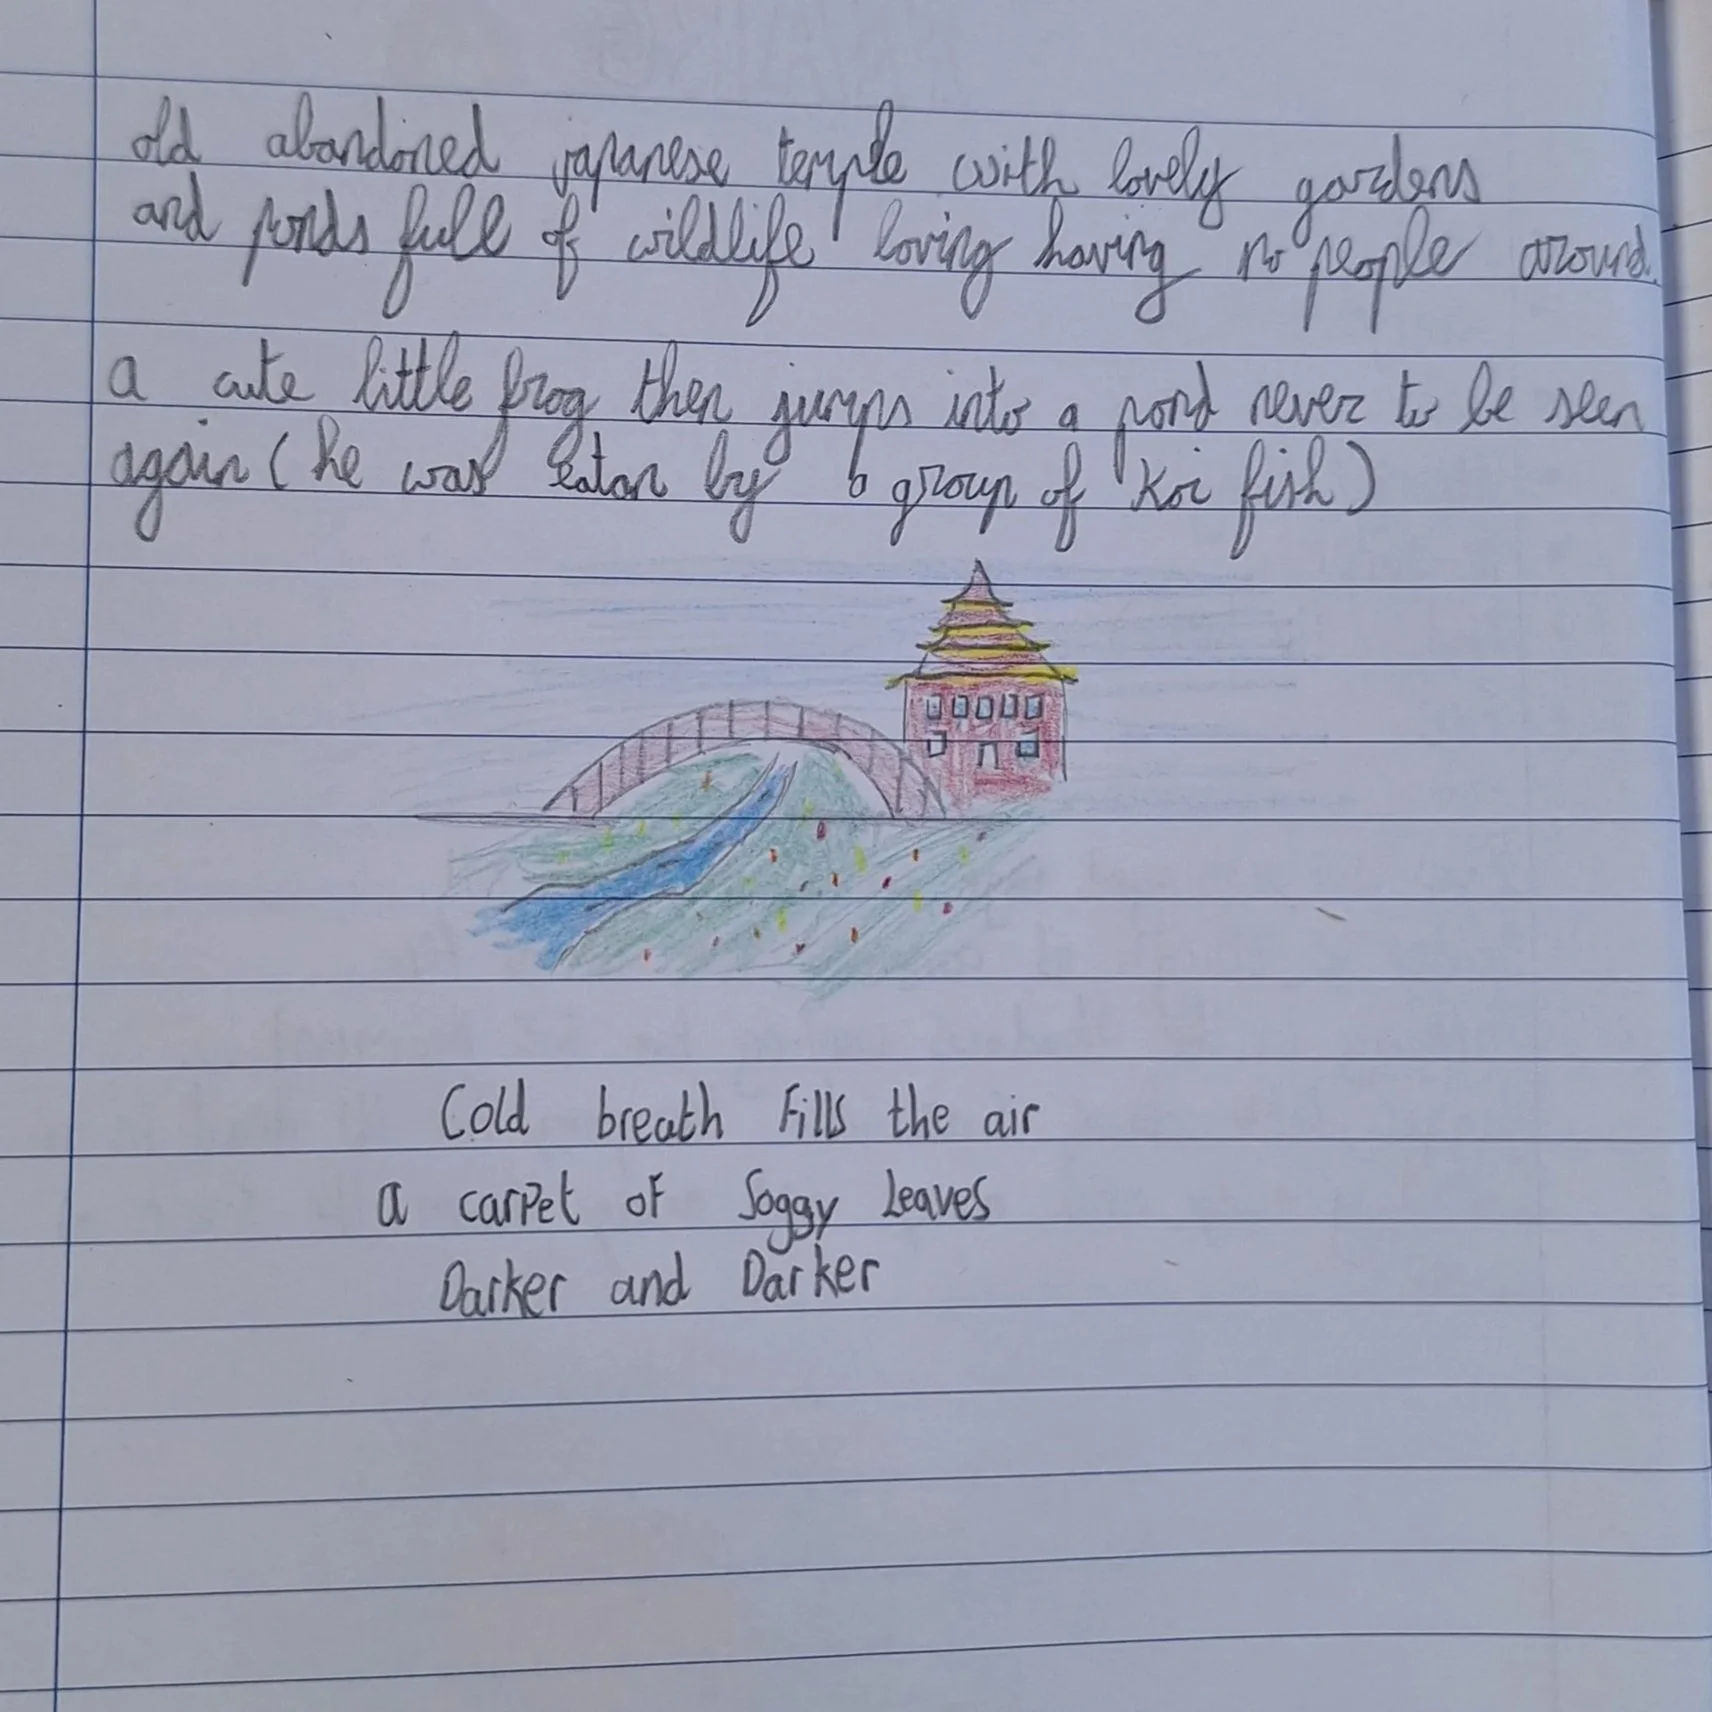 old abandoned japanese temple with lovely gardens
and ponds full of wildlife loving having no people around.
a cute little frog then jumps into a pond never to be seen
again (he was eatan by a group of Koi fish)
Cold breath Fills the air
a carpet of Soggy Leaves
Darker and Darker